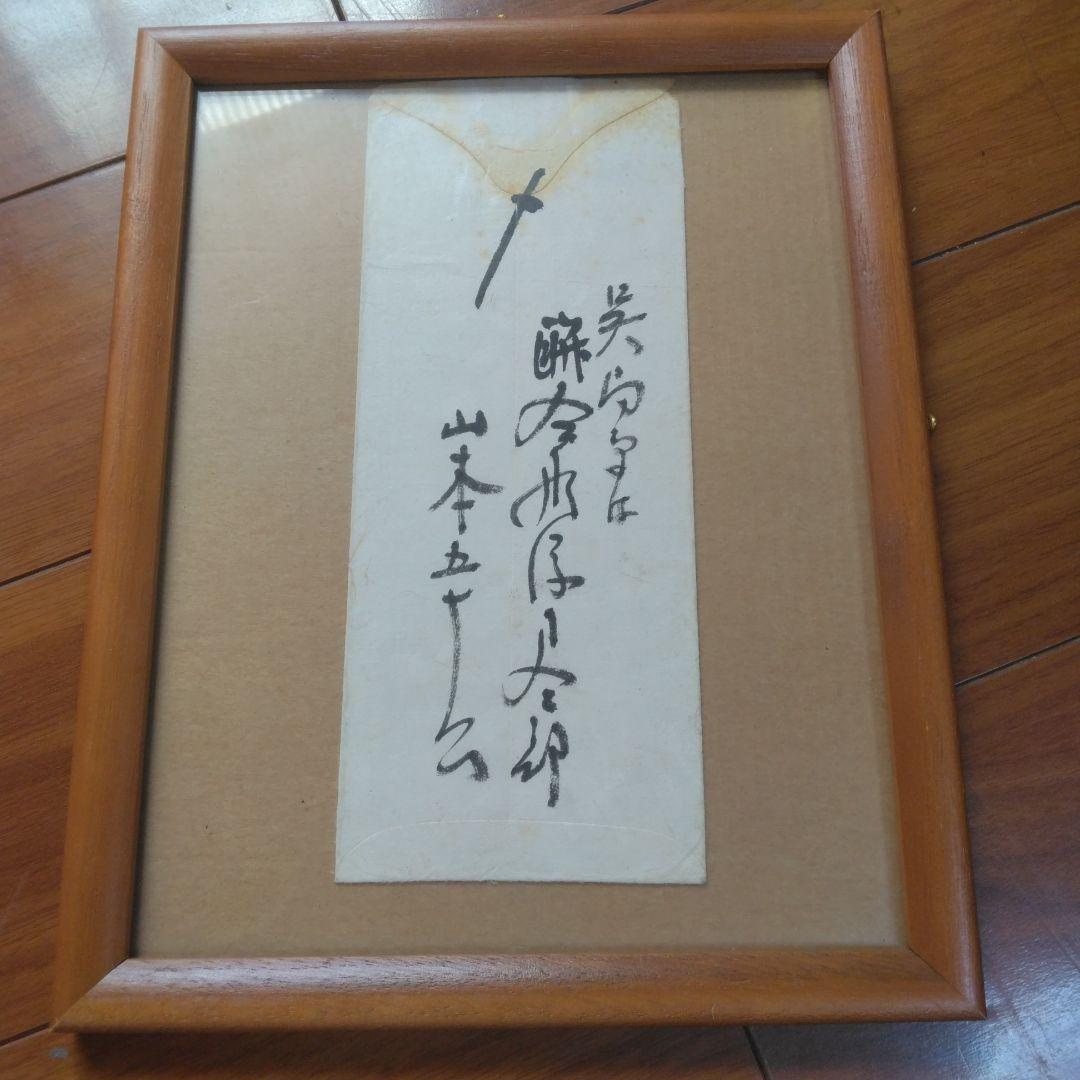 〆
呉局気付
聯合艦隊司令部
山本五十六